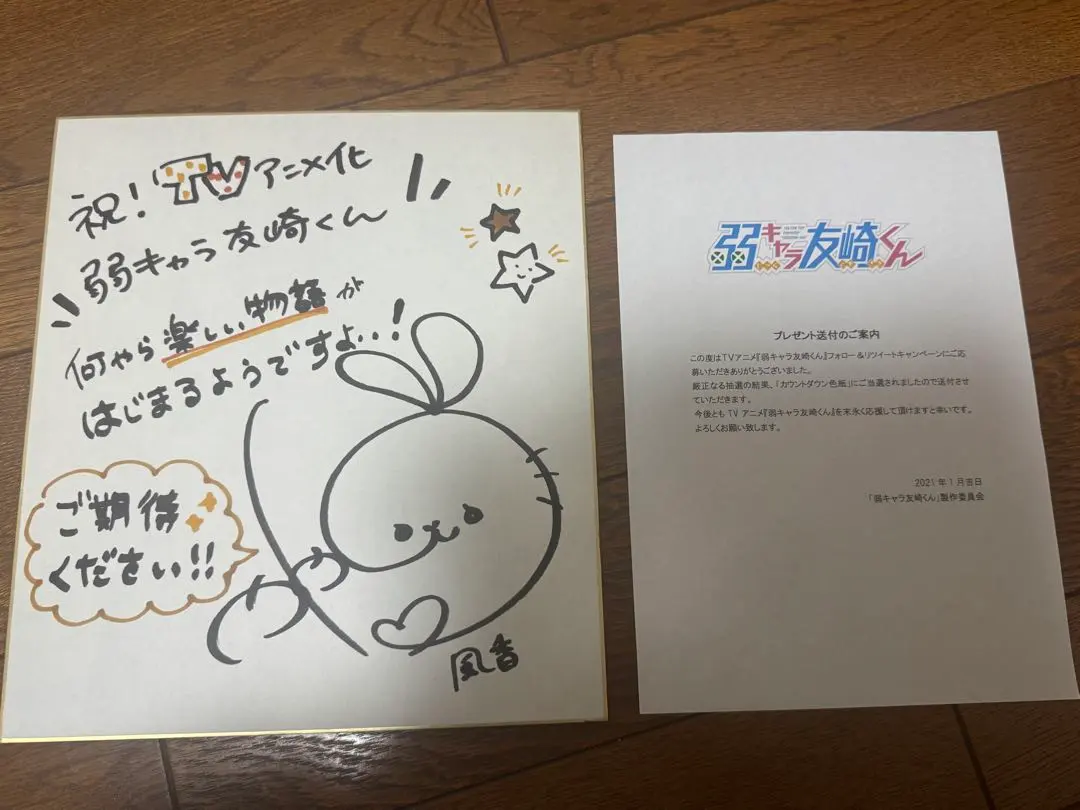 祝！TVアニメ化
弱キャラ友崎くん
何やら楽しい物語が
はじまるようですよ..！
ご期待
ください!!
風香
弱キャラ友崎くん
プレゼント送付のご案内
この度はTVアニメ『弱キャラ友崎くん』フォロー＆リツイートキャンペーンにご応
募いただきありがとうございました。
厳正なる抽選の結果、「カウントダウン色紙」にご当選されましたので送付させ
ていただきます。
今後とも TV アニメ『弱キャラ友崎くん』を末永く応援して頂けますと幸いです。
よろしくお願い致します。
2021 年 1 月吉日
「弱キャラ友崎くん」製作委員会